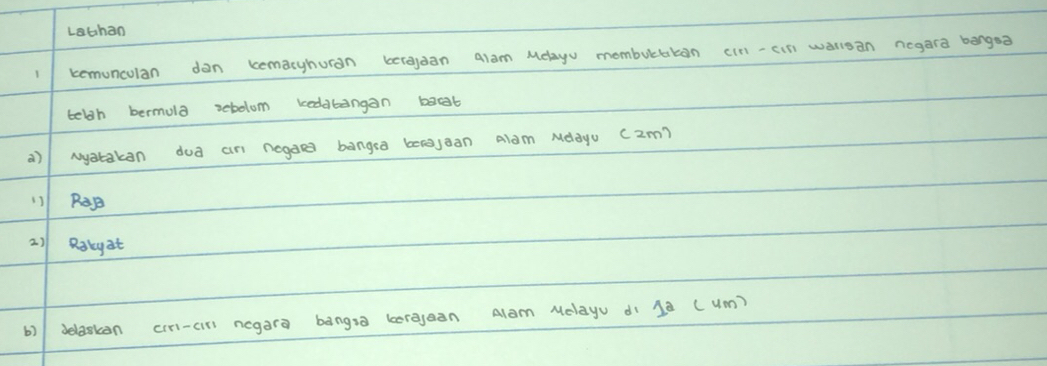 Latihan
1 kemunculan dan kemasyhuran kerajaan Alam Melayu membuktikan ciri-ciri warisan negara bangsa
telah bermula sebelum kedatangan barat
a) Nyatakan dua ciri negara bangsa kerajaan Alam Melayu (2m)
1) Raja
2) Rakyat
b) Jelaskan ciri-ciri negara bangsa kerajaan Alam Melayu di 1a (4m)